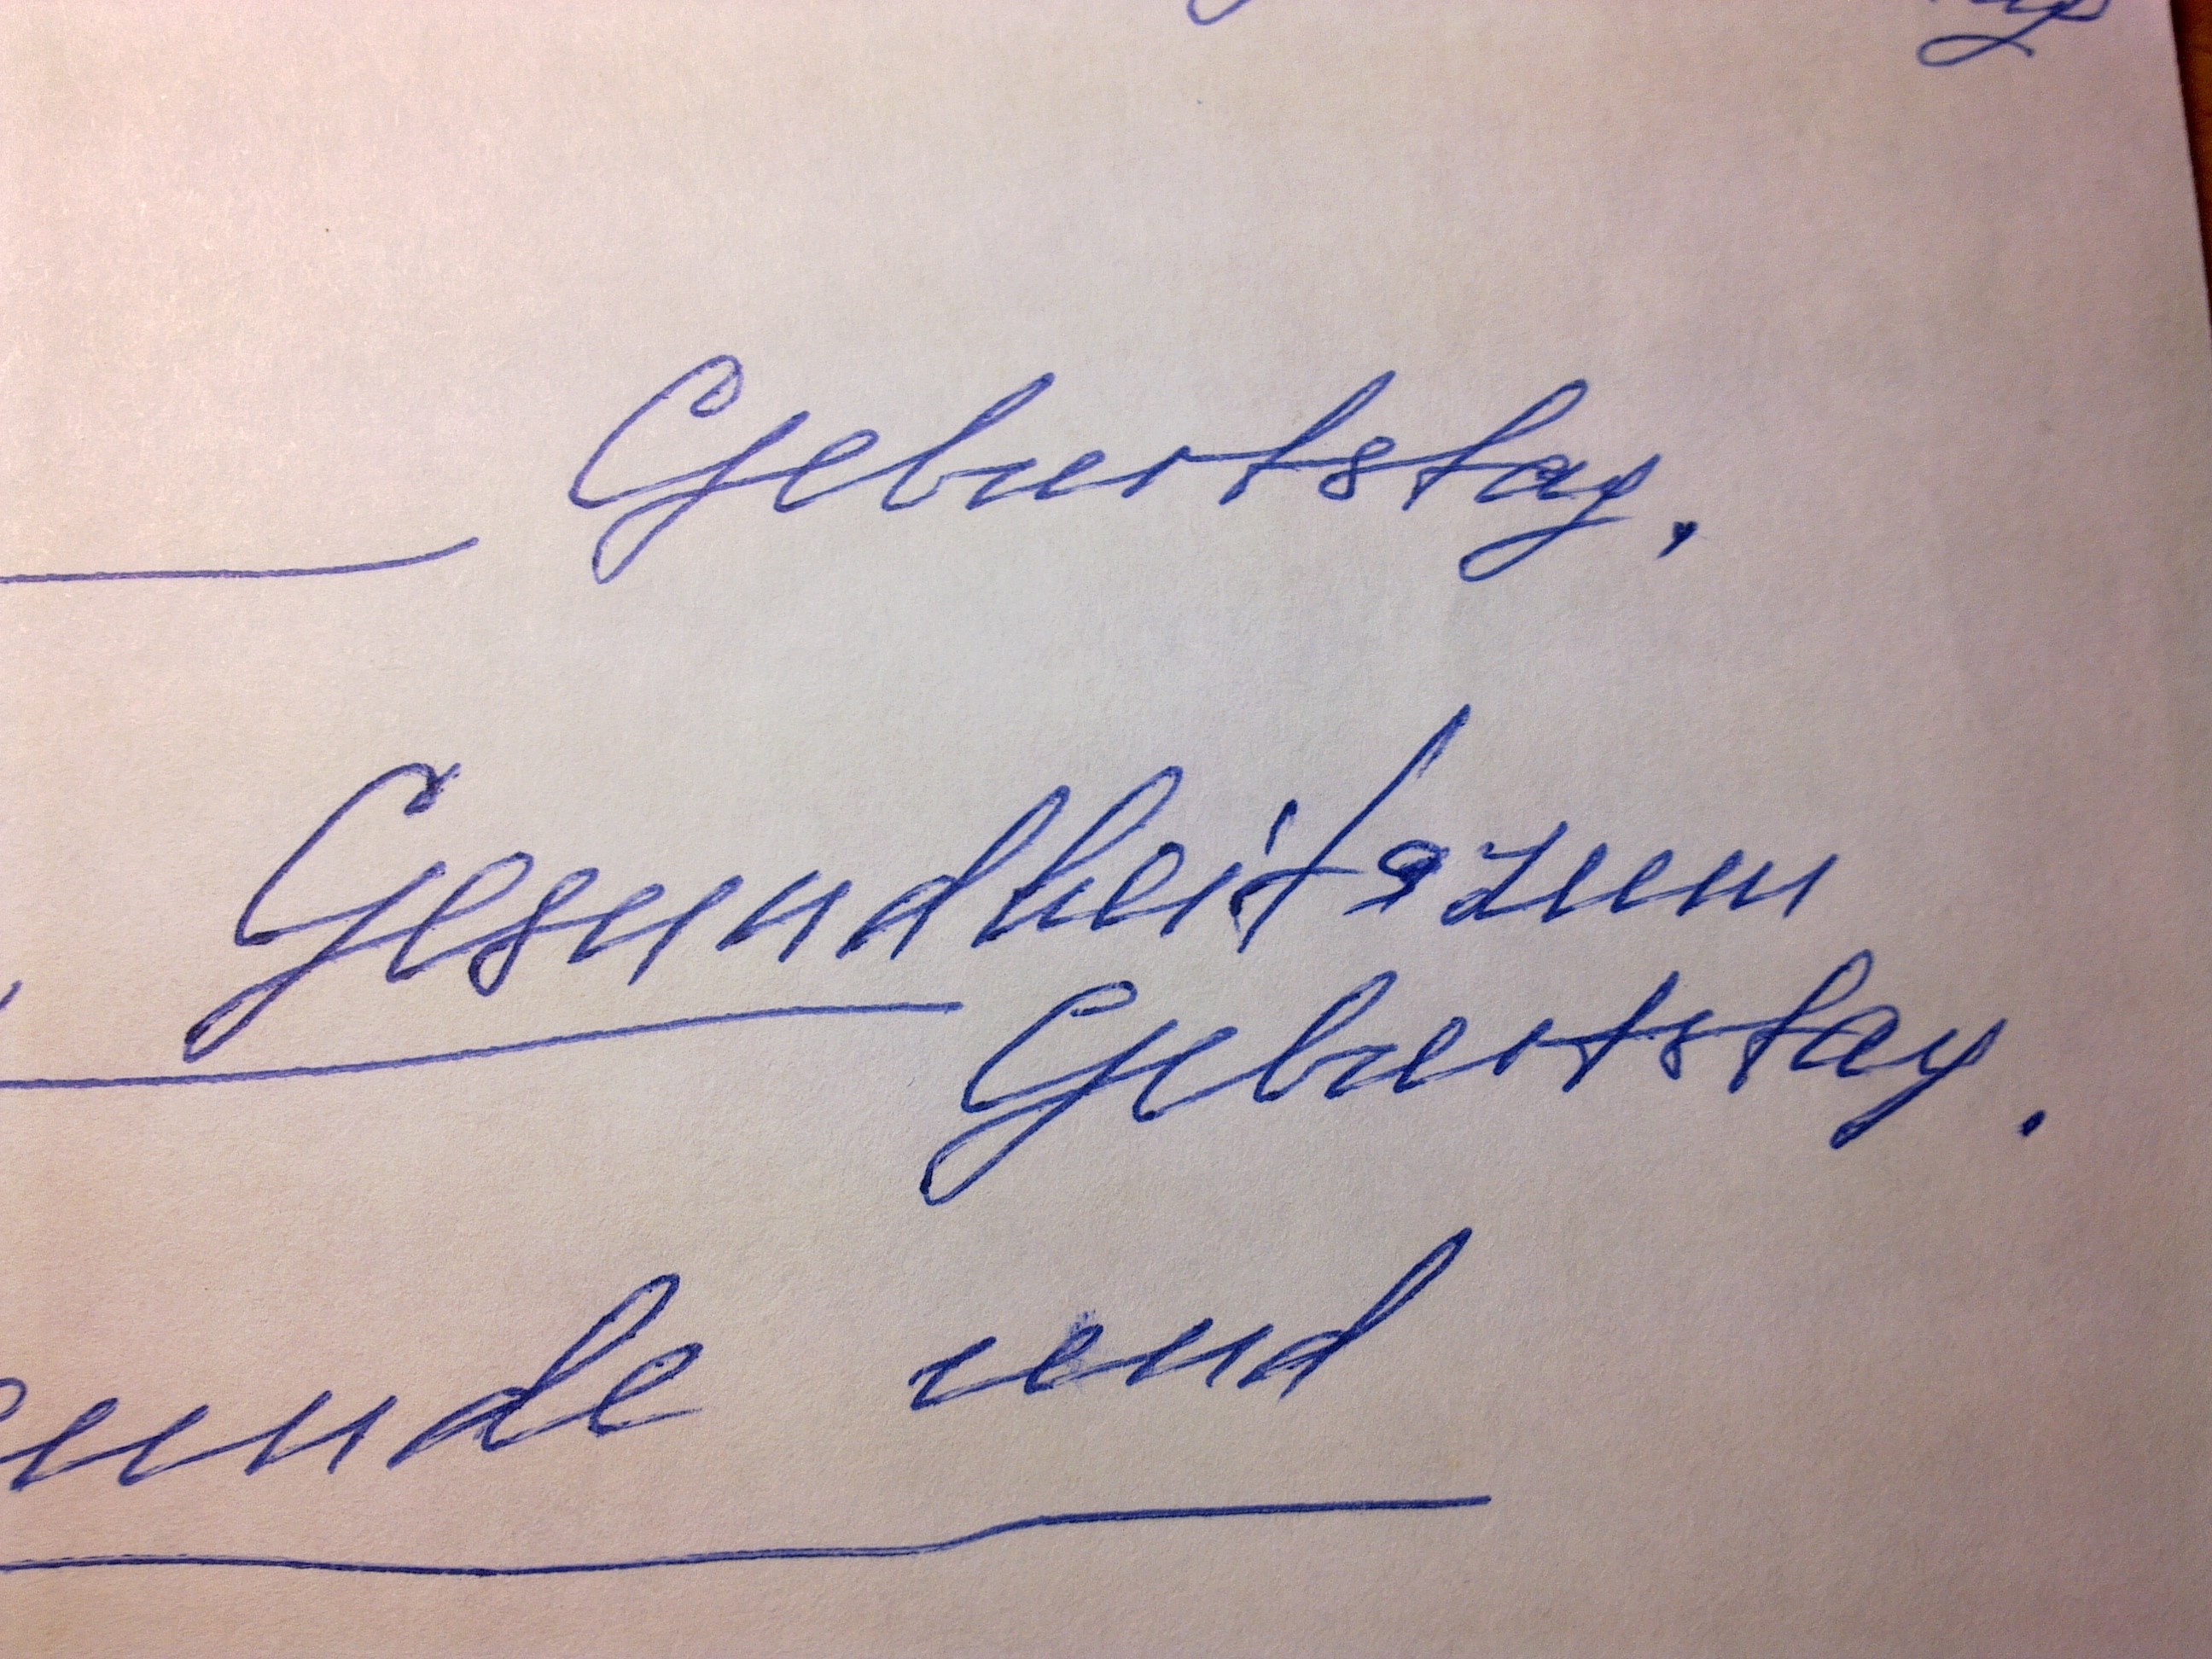 Geburtstag.
Gesundheit zum
Geburtstag.
und